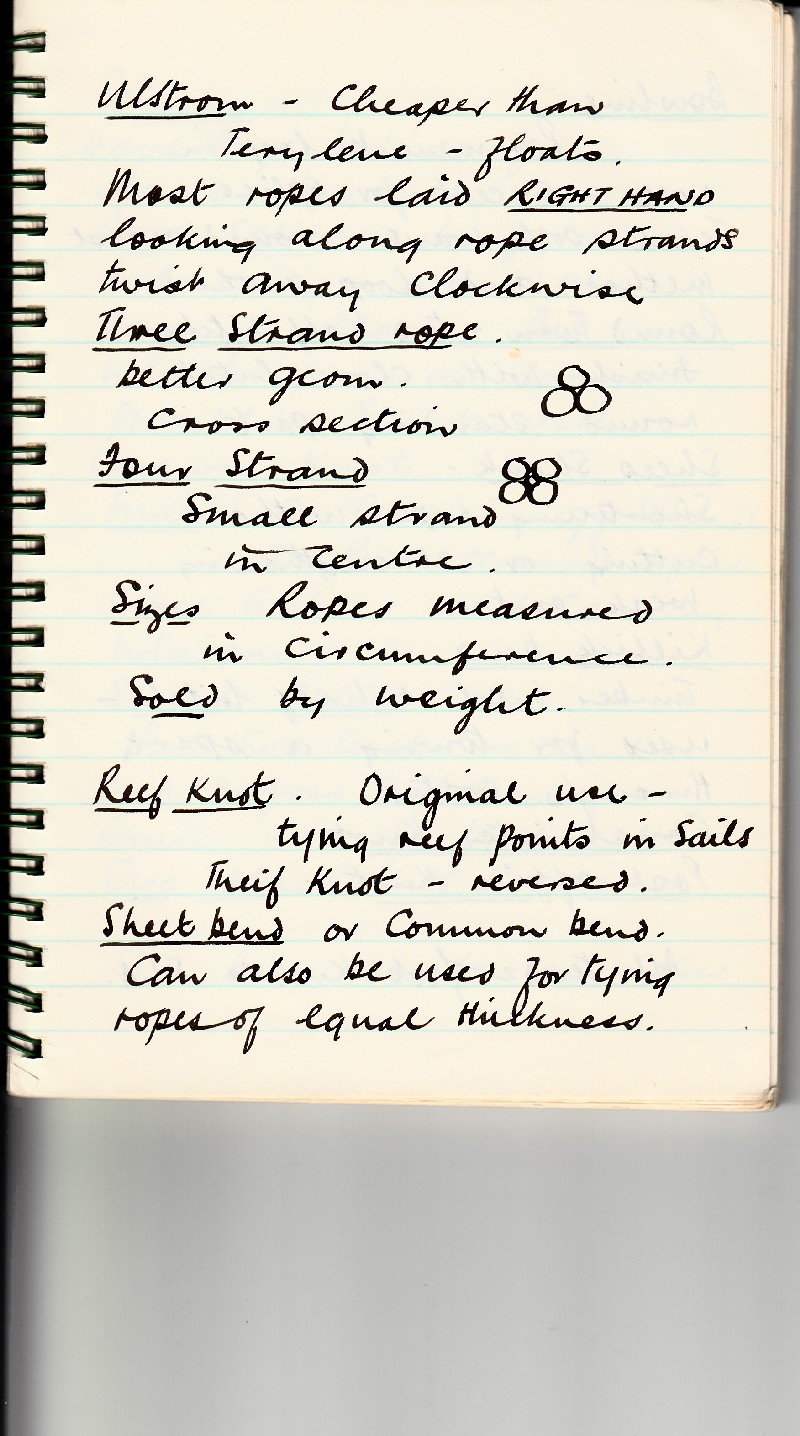 Ulstrom - Cheaper than
Terylene - floats.
Most ropes laid RIGHT HAND
looking along rope strands
twist away Clockwise
Three Strand rope.
better geom.
cross section
Four Strand
Small strand
in centre.
Sizes Ropes measured
in circumference.
Sold by weight.
Reef Knot. Original use -
tying reef points in Sails
Theif Knot - reversed.
Sheet bend or Common bend.
Can also be used for tying
ropes of equal thickness.